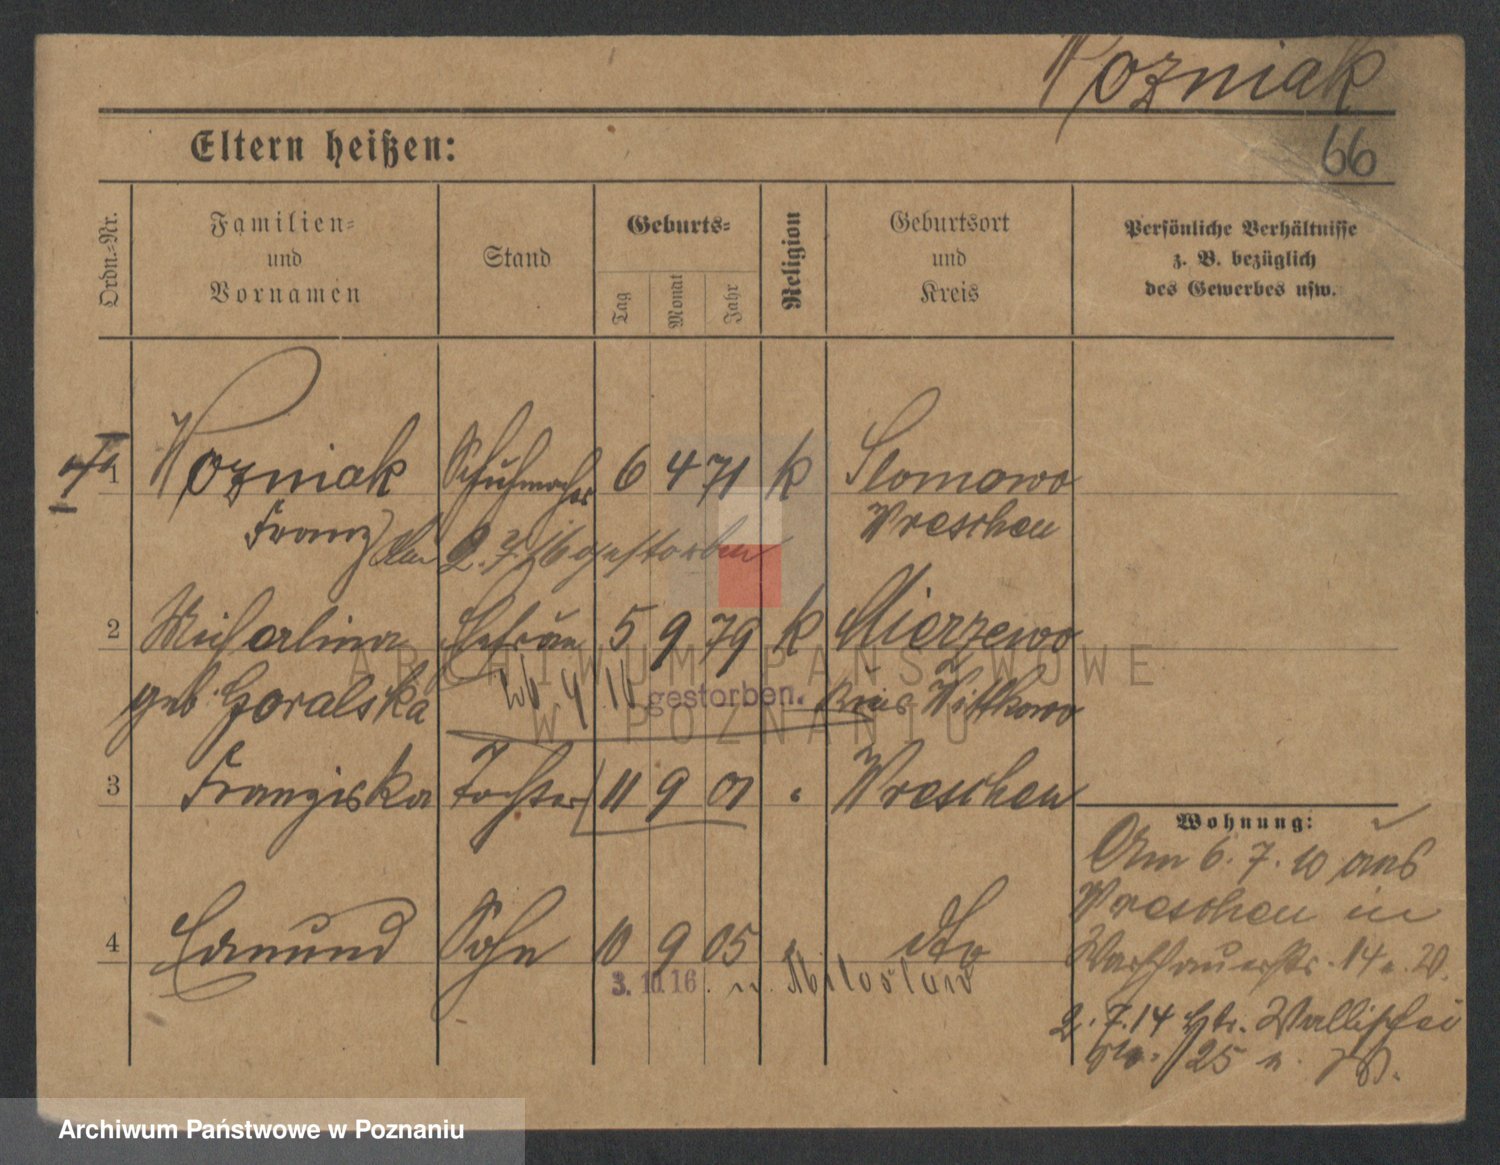 Wozniak
66
Eltern heißen:
Ordn.-Nr.
Familien- und Vornamen
Stand
Geburts-
Tag
Monat
Jahr
Religion
Geburtsort und Kreis
Persönliche Verhältnisse
z. B. bezüglich
des Gewerbes usw.
1 Wozniak Schuhmacher 6 4 71 k Slomowo
Franz Wreschen
2.7.16 gestorben
2 Michalina Ehefrau 5 9 79 k Mierzewo
geb. Goralska gestorben. Kreis Wittkowo
3 Franziska Tochter 11 9 01 Wreschen
Wohnung:
Am 6.7.10 aus
Wreschen in
Warschauerstr. 14 e. W.
4 Edmund Sohn 10 9 05 do
3. 10. 16. n. Miloslaw
2.7.14 Wallischei
No. 25
ARCHIWUM PAŃSTWOWE
W POZNANIU
Archiwum Państwowe w Poznaniu